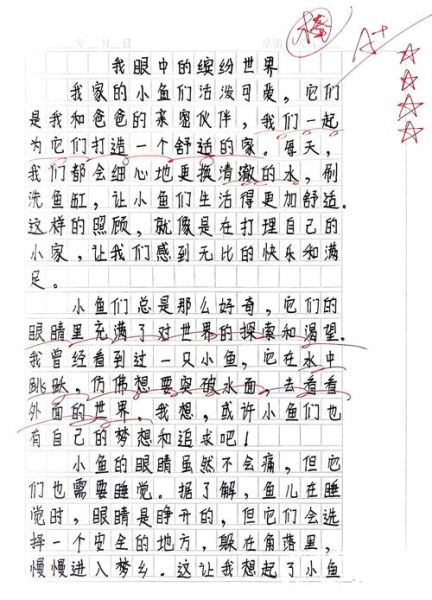 棒
A+
年 月 日
我眼中的缤纷世界
我家的小鱼们活泼可爱，它们
是我和爸爸的亲密伙伴，我们一起
为它们打造一个舒适的家。每天，
我们都会细心地更换清澈的水，刷
洗鱼缸，让小鱼们生活得更加舒适．
这样的照顾，就像是在打理自己的
小家，让我们感到无比的快乐和满
足。
小鱼们总是那么好奇，它们的
眼睛里充满了对世界的探索和渴望．
我曾经看到过一只小鱼，它在水中
跳跃，仿佛想要突破水面，去看看
外面的世界．我想，或许小鱼们也
有自己的梦想和追求吧！
小鱼的眼睛虽然不会痛，但它
们也需要睡觉．据了解，鱼儿在睡
觉时，眼睛是睁开的，但它们会选
择一个安全的地方，躲在角落里，
慢慢进入梦乡．这让我想起了小鱼